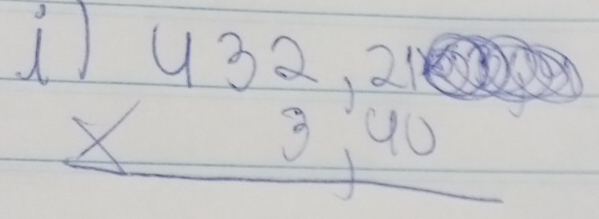 i) 432,21
x 3,40